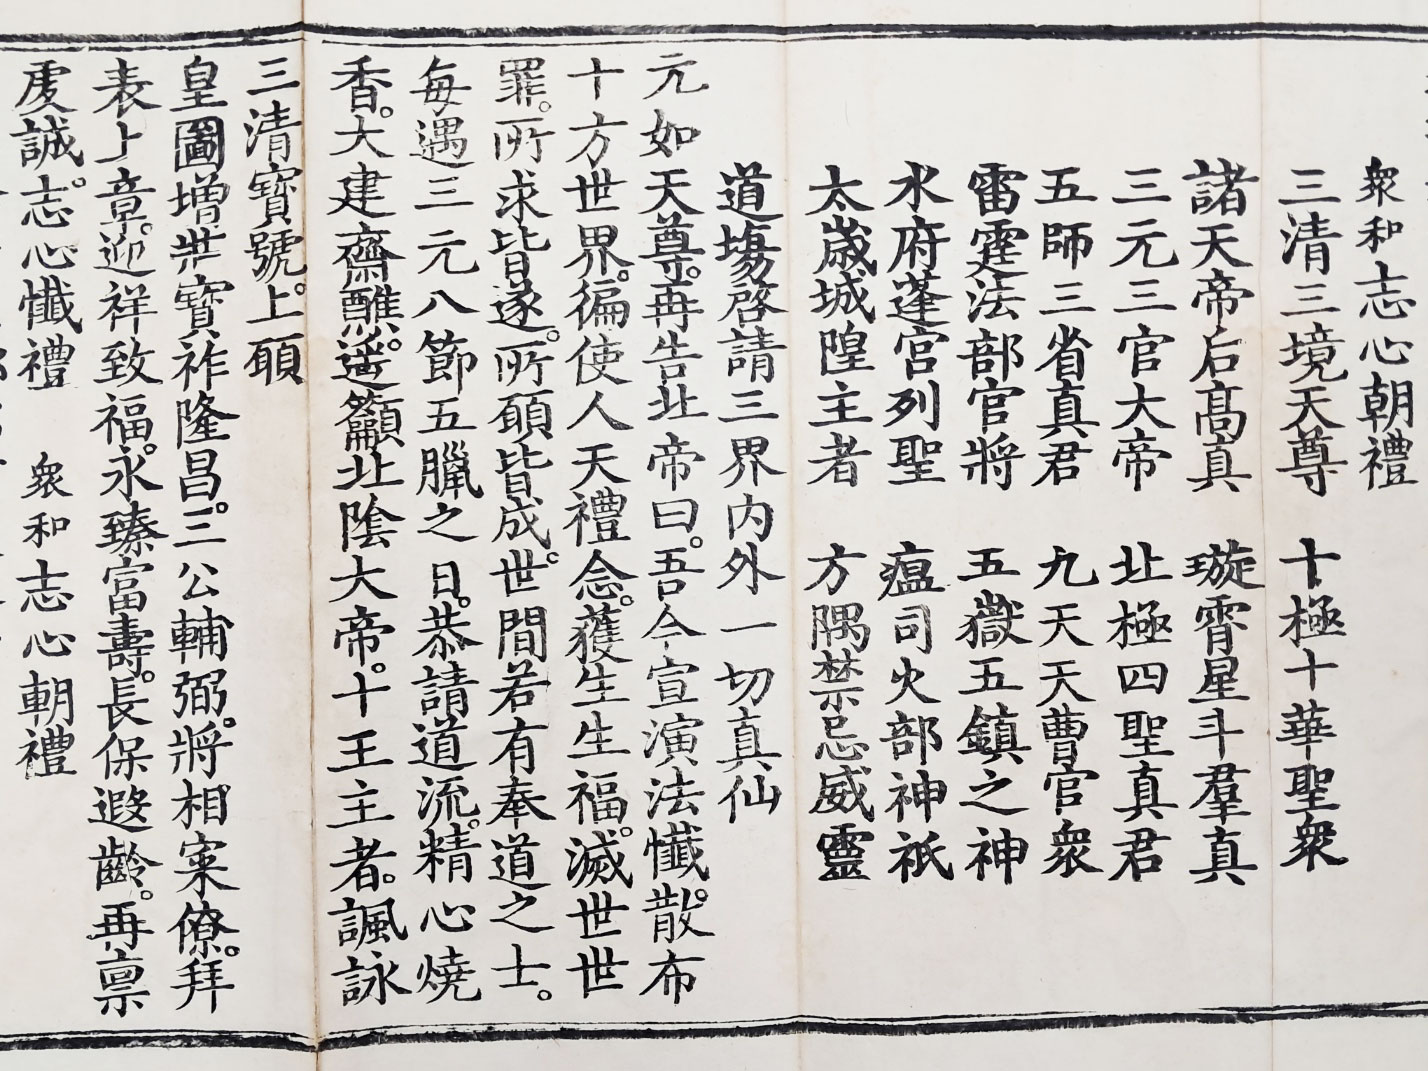 衆和志心朝禮
三清三境天尊　十極十華聖衆
諸天帝后高真　璇霄星斗羣真
三元三官大帝　北極四聖真君
五師三省真君　九天天曹官衆
雷霆法部官將　五嶽五鎮之神
水府蓬宮列聖　瘟司火部神祇
太歲城隍主者　方隅禁忌威靈
道場啓請三界内外一切真仙
元如天尊。再告北帝曰。吾今宣演法懺。散布
十方世界。徧使人天禮念。獲生生福。滅世世
罪。所求皆遂。所願皆成。世間若有奉道之士。
每遇三元八節五臘之日。恭請道流。精心燒
香。大建齋醮。遥籲北陰大帝。十王主者。諷詠
三清寶號。上願
皇圖增壯寶祚隆昌。三公輔弼。將相寀僚。拜
表上章。迎祥致福。永臻富壽。長保遐齡。再禀
虔誠。志心懺禮　衆和志心朝禮